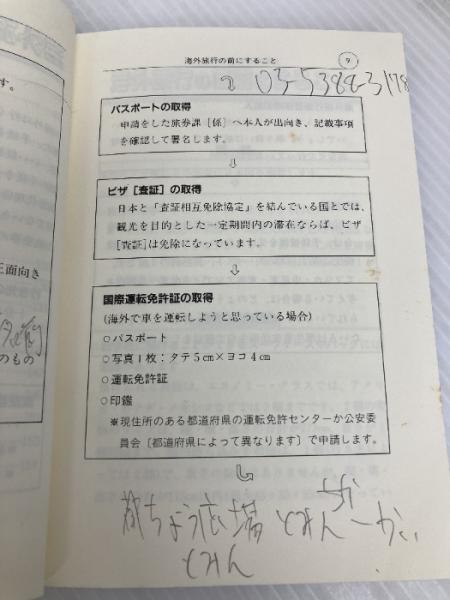 海外旅行の前にすること
9
03-5388-3178
パスポートの取得
申請をした旅券課［係］へ本人が出向き、記載事項
を確認して署名します。
ビザ［査証］の取得
日本と「査証相互免除協定」を結んでいる国とでは、
観光を目的とした一定期間内の滞在ならば、ビザ
［査証］は免除になっています。
国際運転免許証の取得
(海外で車を運転しようと思っている場合)
○パスポート
○写真1枚：タテ5cm×ヨコ4cm
○運転免許証
○印鑑
※現住所のある都道府県の運転免許センターか公安委
員会〔都道府県によって異なります〕で申請します。
ちょう広場
とみん
す。
三面向き
のもの